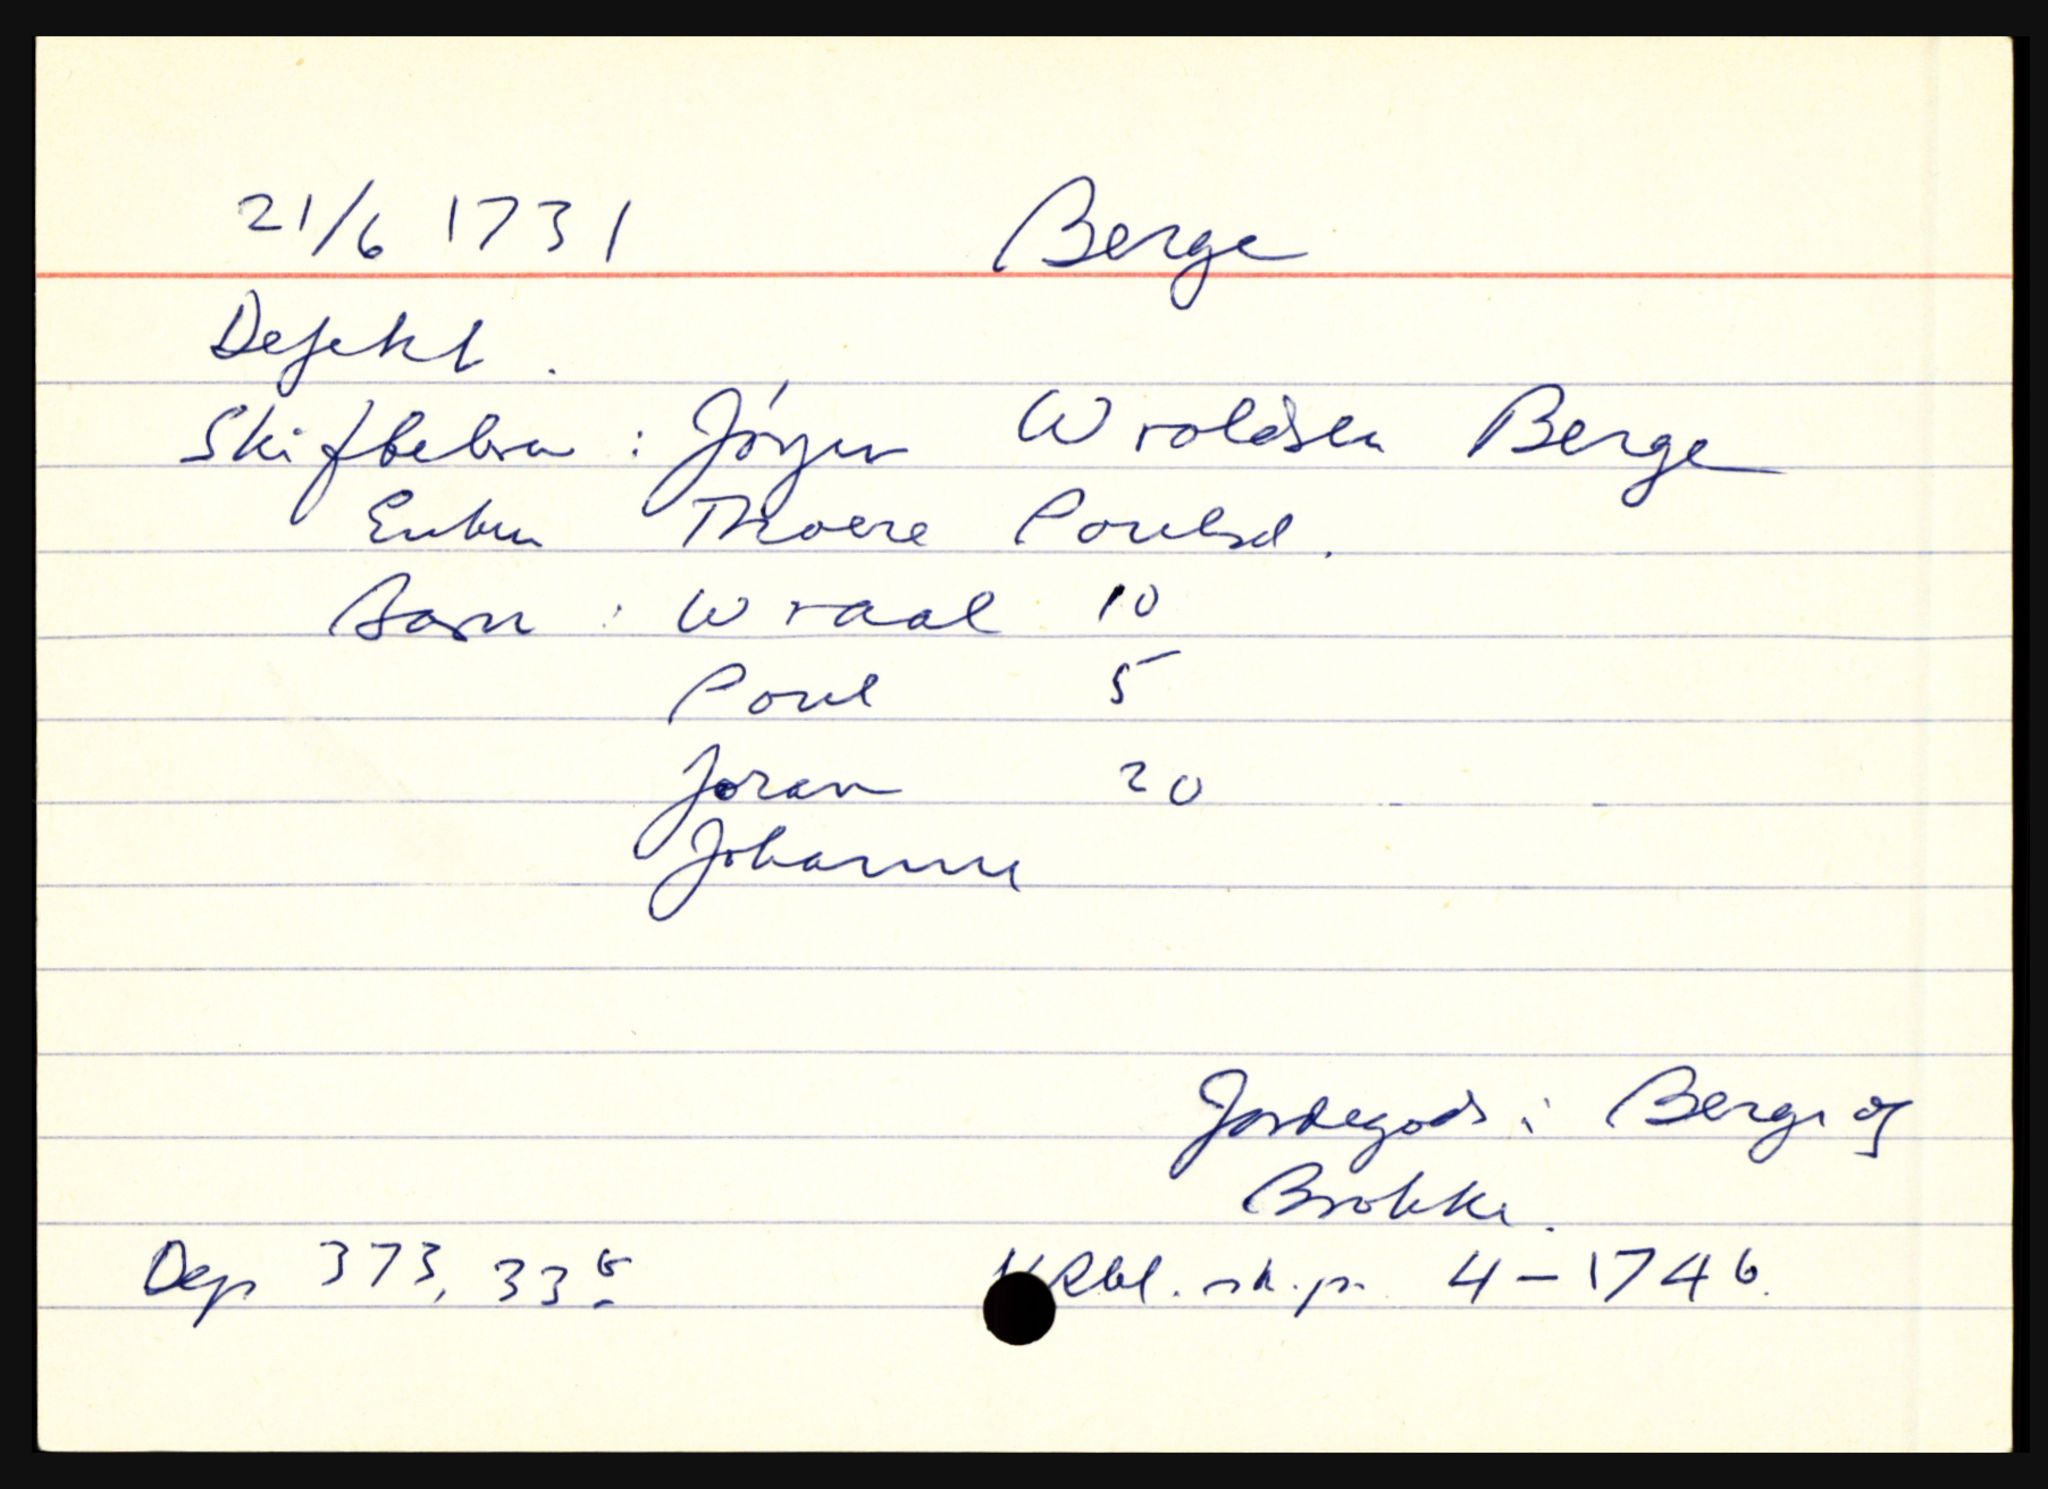 21/6 1731 Berge
Defekt.
Skiftebrev: Jörgen Wroldsen Berge
Enken Thoere Poulsd.
Barn: Wraal 10
Poul 5
Joran 20
Johanne
Jordegods i Berge og
Brokke.
Dep 373, 33
Rbl. sk.pr. 4-1746.